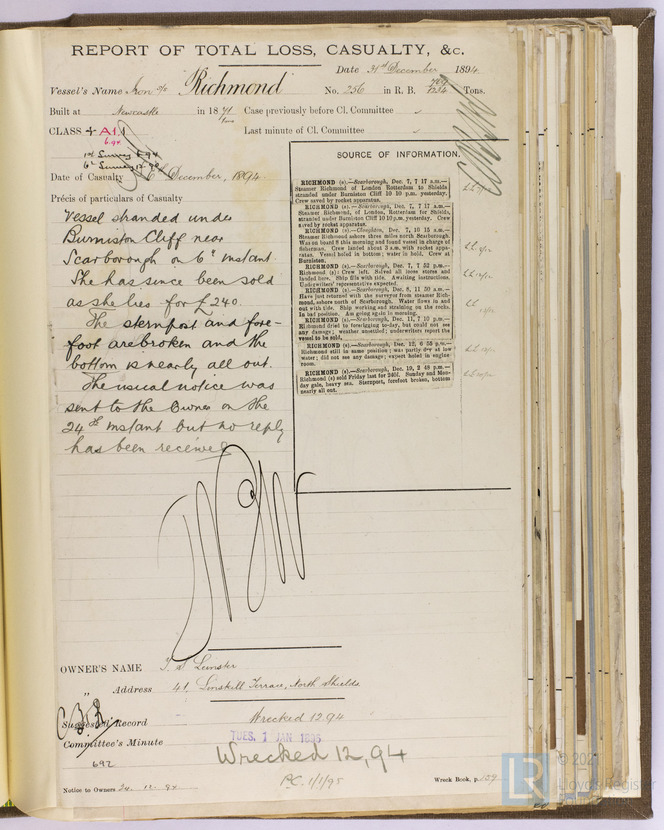 REPORT OF TOTAL LOSS, CASUALTY, &c.
Date 31st December 1894
Vessel's Name Iron s/s Richmond No. 256 in R. B. 1234 Tons.
Built at Newcastle in 1871 Case previously before Cl. Committee
CLASS + A1.1 Last minute of Cl. Committee
6.94
1st Survey 94
6th Survey 12.90
Date of Casualty 6th December, 1894.
Précis of particulars of Casualty
Vessel stranded under
Burniston Cliff near
Scarborough on 6th instant
She has since been sold
as she lies for £240.
The sternpost and fore-
foot are broken and the
bottom is nearly all out.
The usual notice was
sent to the Owner on the
24th instant but no reply
has been received
SOURCE OF INFORMATION.
RICHMOND (s).—Scarborough, Dec. 7, 7 17 a.m.—
Steamer Richmond of London Rotterdam to Shields
stranded under Burniston Cliff 10 10 p.m. yesterday.
Crew saved by rocket apparatus.
RICHMOND (s).—Scarborough, Dec. 7, 7 17 a.m.—
Steamer Richmond, of London, Rotterdam for Shields,
stranded under Burniston Cliff 10 10 p.m. yesterday. Crew
saved by rocket apparatus.
RICHMOND (s).—Cloughton, Dec. 7, 10 15 a.m.—
Steamer Richmond ashore three miles north Scarborough.
Was on board 8 this morning and found vessel in charge of
fishermen. Crew landed about 3 a.m. with rocket appa-
ratus. Vessel holed in bottom; water in hold. Crew at
Burniston.
RICHMOND (s).—Scarborough, Dec. 7, 7 52 p.m.—
Richmond (s): Crew left. Salved all loose stores and
landed here. Ship fills with tide. Awaiting instructions.
Underwriters' representative expected.
RICHMOND (s).—Scarborough, Dec. 8, 11 50 a.m.—
Have just returned with the surveyor from steamer Rich-
mond, ashore north of Scarborough. Water flows in and
out with tide. Ship working and straining on the rocks.
In bad position. Am going again in morning.
RICHMOND (s).—Scarborough, Dec. 11, 7 10 p.m.—
Richmond dried to forerigging to-day, but could not see
any damage; weather unsettled; underwriters report the
vessel to be sold.
RICHMOND (s).—Scarborough, Dec. 12, 6 55 p.m.—
Richmond still in same position; was partly dry at low
water; did not see any damage; expect holed in engine
room.
RICHMOND (s).—Scarborough, Dec. 19, 2 48 p.m.—
Richmond (s) sold Friday last for 240l. Sunday and Mon-
day gale, heavy sea. Sternpost, forefoot broken, bottom
nearly all out.
OWNER'S NAME T. S. Leinster
" Address 41, Linskill Terrace, North Shields
Suggested Record Wrecked 12.94
Committee's Minute TUES. 1 JAN 1895
Wrecked 12,94
692
Notice to Owners 24. 12. 94 P.C. 1/1/95 Wreck Book, p. 159
LR
© 2021
Lloyd's Register